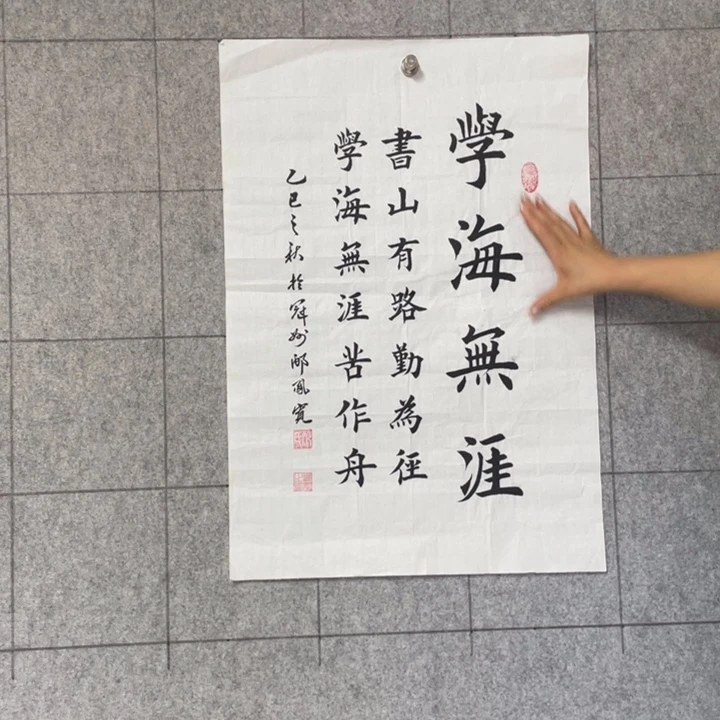 學海無涯
書山有路勤為徑
學海無涯苦作舟
乙巳之秋於冠州邴鳳寛